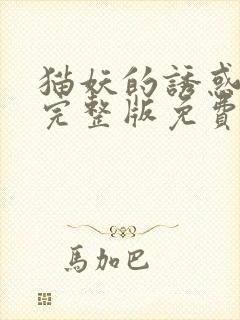 猫妖的誘惑
完整版免費
馬加巴